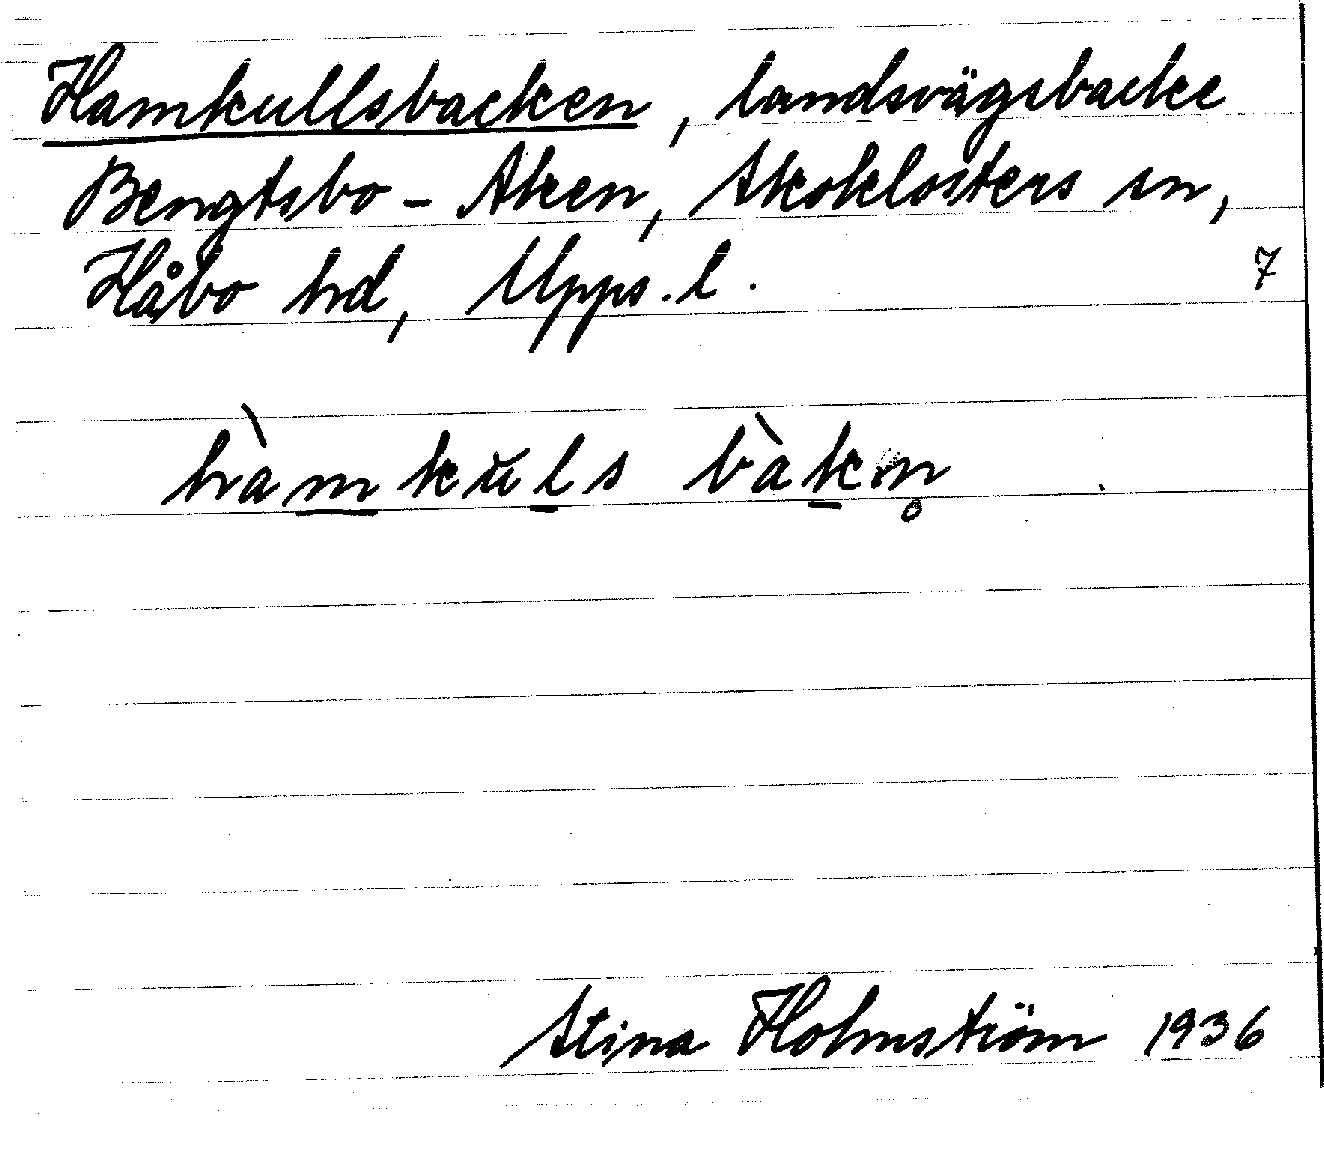 Hamkullsbacken, landsvägsbacke
Bengtsbo - Aken, Skoklosters sn,
Håbo hd, Upps. l.
7
hàm̲kŭl̲s bàk̲n̥
Stina Holmström 1936